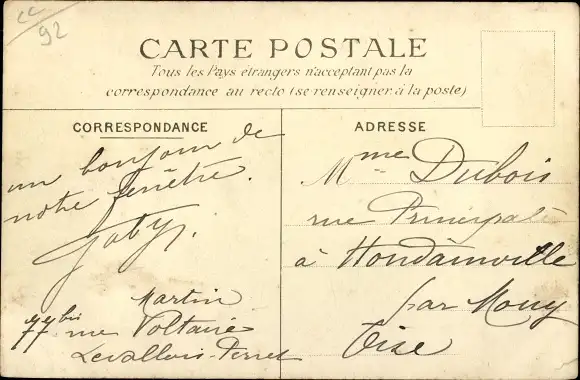 CC
92
CARTE POSTALE
Tous les Pays étrangers n'acceptant pas la
correspondance au recto (se renseigner à la poste)
CORRESPONDANCE
un bonjour de
notre fenêtre.
Gaby.
Martin
77 bis rue Voltaire
Levallois-Perret
ADRESSE
Mme Dubois
rue Principale
à Hondainville
par Mouy
Oise